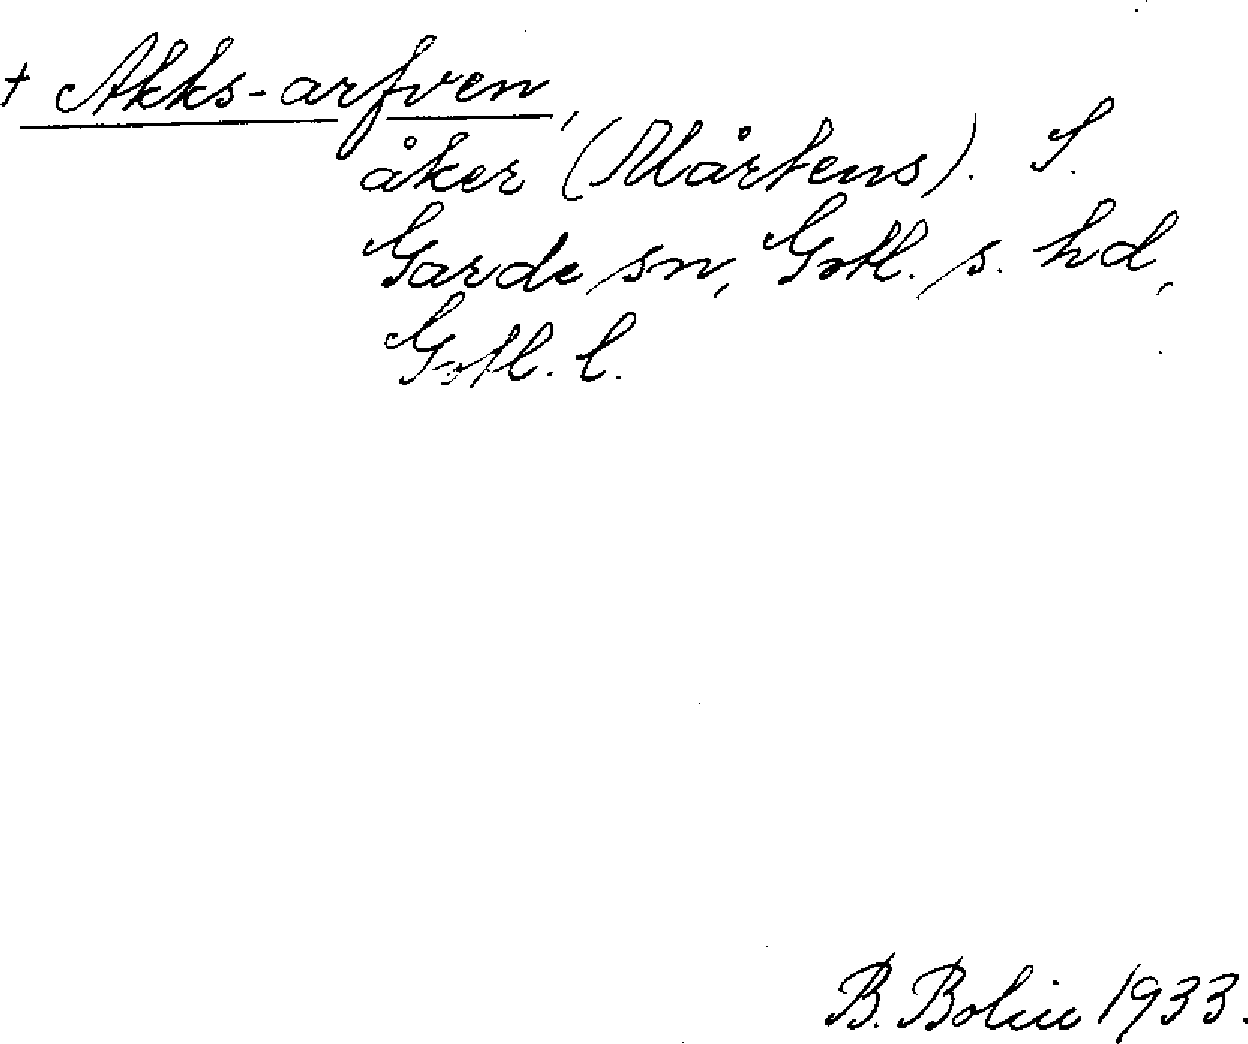 + Akks-arfven,
åker (Mårtens). S.
Garde sn, Gotl. s. hd,
Gotl. l.
B. Bolin 1933.